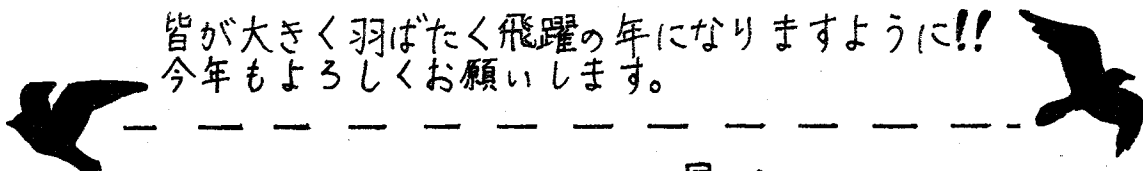 皆が大きく羽ばたく飛躍の年になりますように!!
今年もよろしくお願いします。